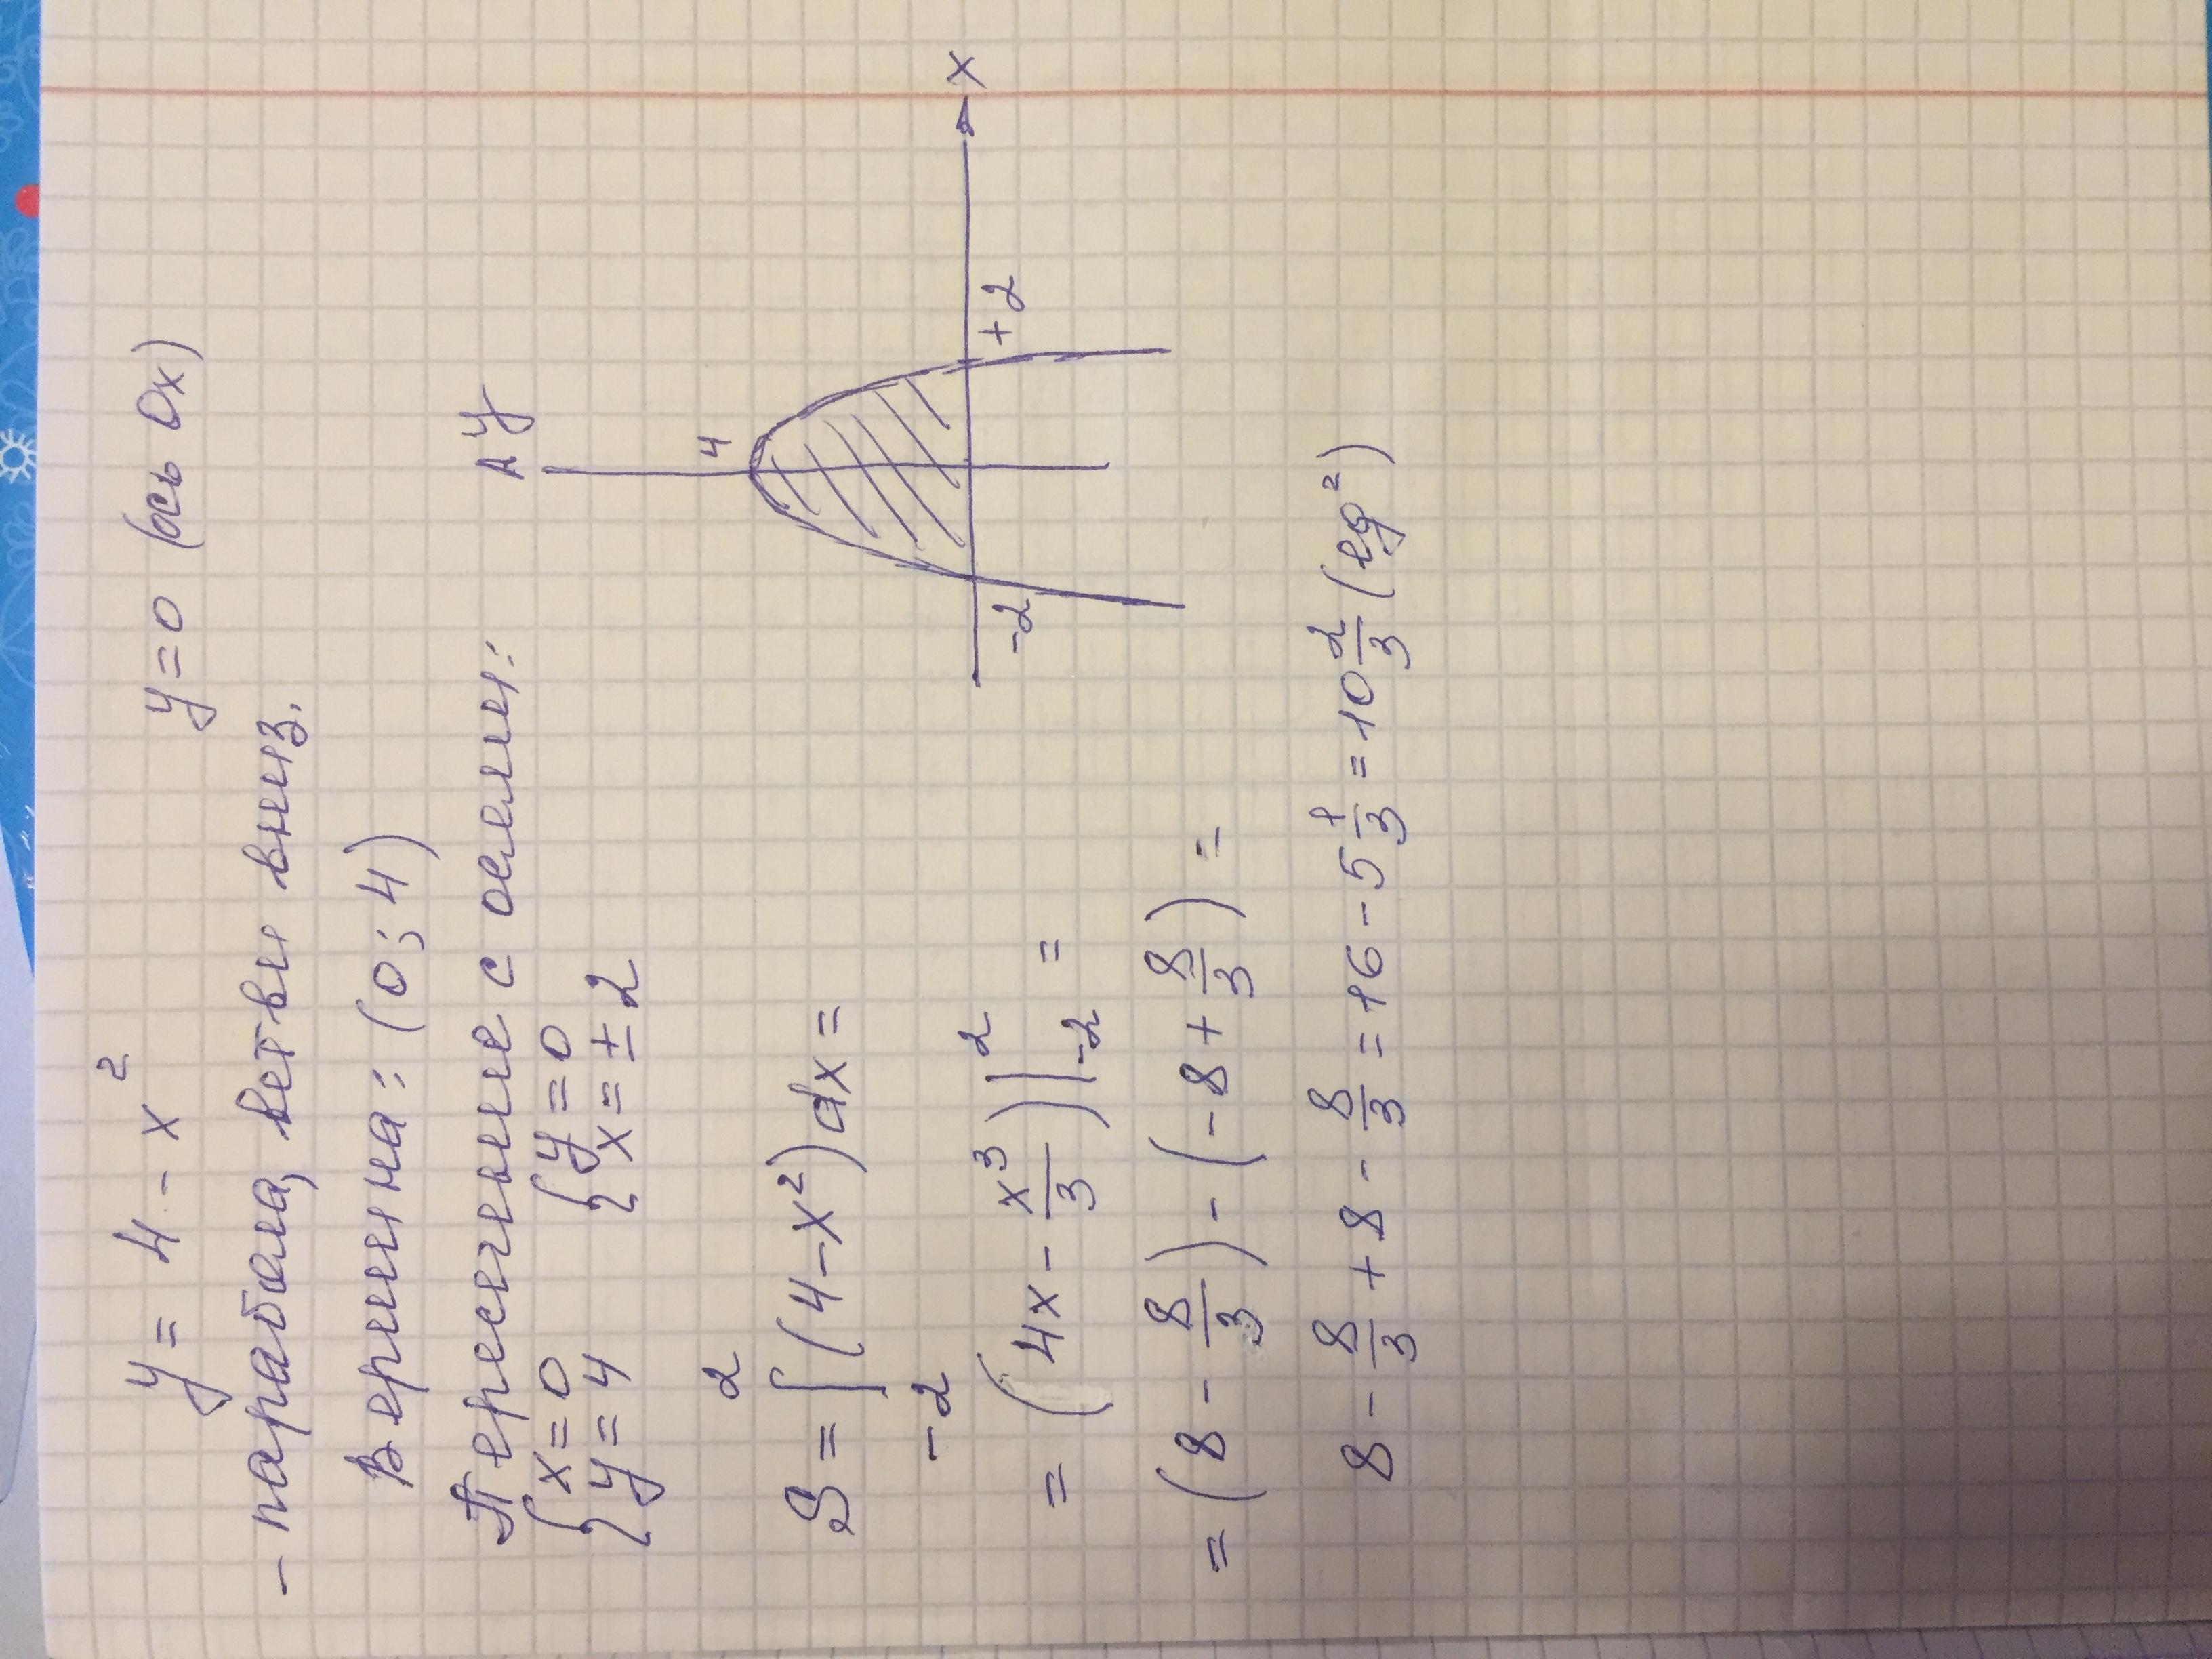 y = 4 - x²
y = 0 (ось Ox)
- парабола, ветви вниз.
Вершина: (0; 4)
Пересечение с осями:
{ x = 0
y = 4
{ y = 0
x = ± 2
y
4
-2
+2
x
S = ∫₋₂² (4 - x²) dx =
= (4x - x³/3) |₋₂² =
= (8 - 8/3) - (-8 + 8/3) =
8 - 8/3 + 8 - 8/3 = 16 - 5 1/3 = 10 2/3 (eg²)